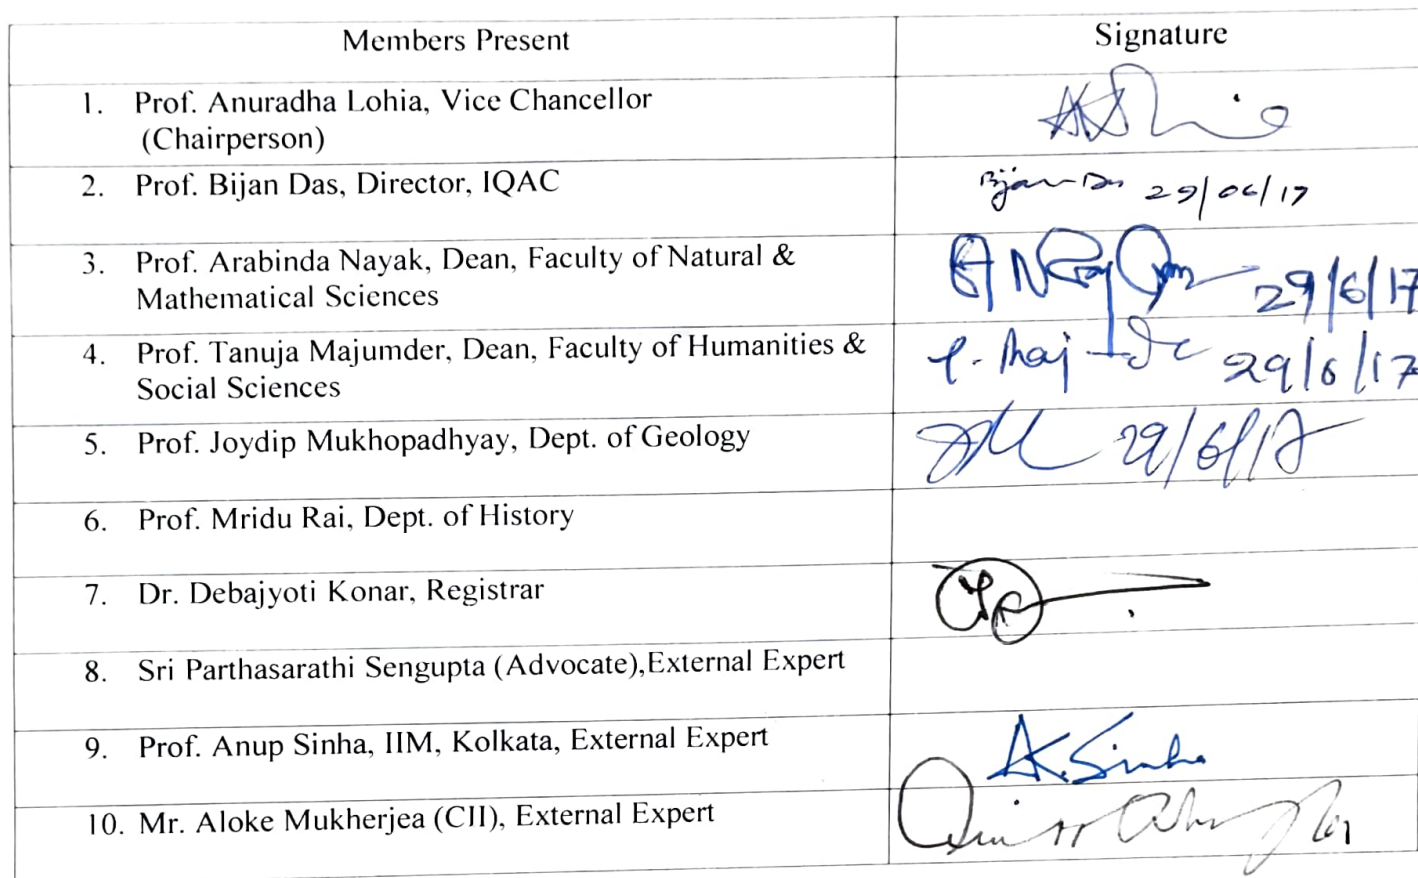 Members Present Signature
1. Prof. Anuradha Lohia, Vice Chancellor
(Chairperson)
2. Prof. Bijan Das, Director, IQAC Bijan Das 29/06/17
3. Prof. Arabinda Nayak, Dean, Faculty of Natural &
Mathematical Sciences 29/6/17
4. Prof. Tanuja Majumder, Dean, Faculty of Humanities &
Social Sciences 29/6/17
5. Prof. Joydip Mukhopadhyay, Dept. of Geology 29/6/17
6. Prof. Mridu Rai, Dept. of History
7. Dr. Debajyoti Konar, Registrar
8. Sri Parthasarathi Sengupta (Advocate),External Expert
9. Prof. Anup Sinha, IIM, Kolkata, External Expert A.K.Sinha
10. Mr. Aloke Mukherjea (CII), External Expert